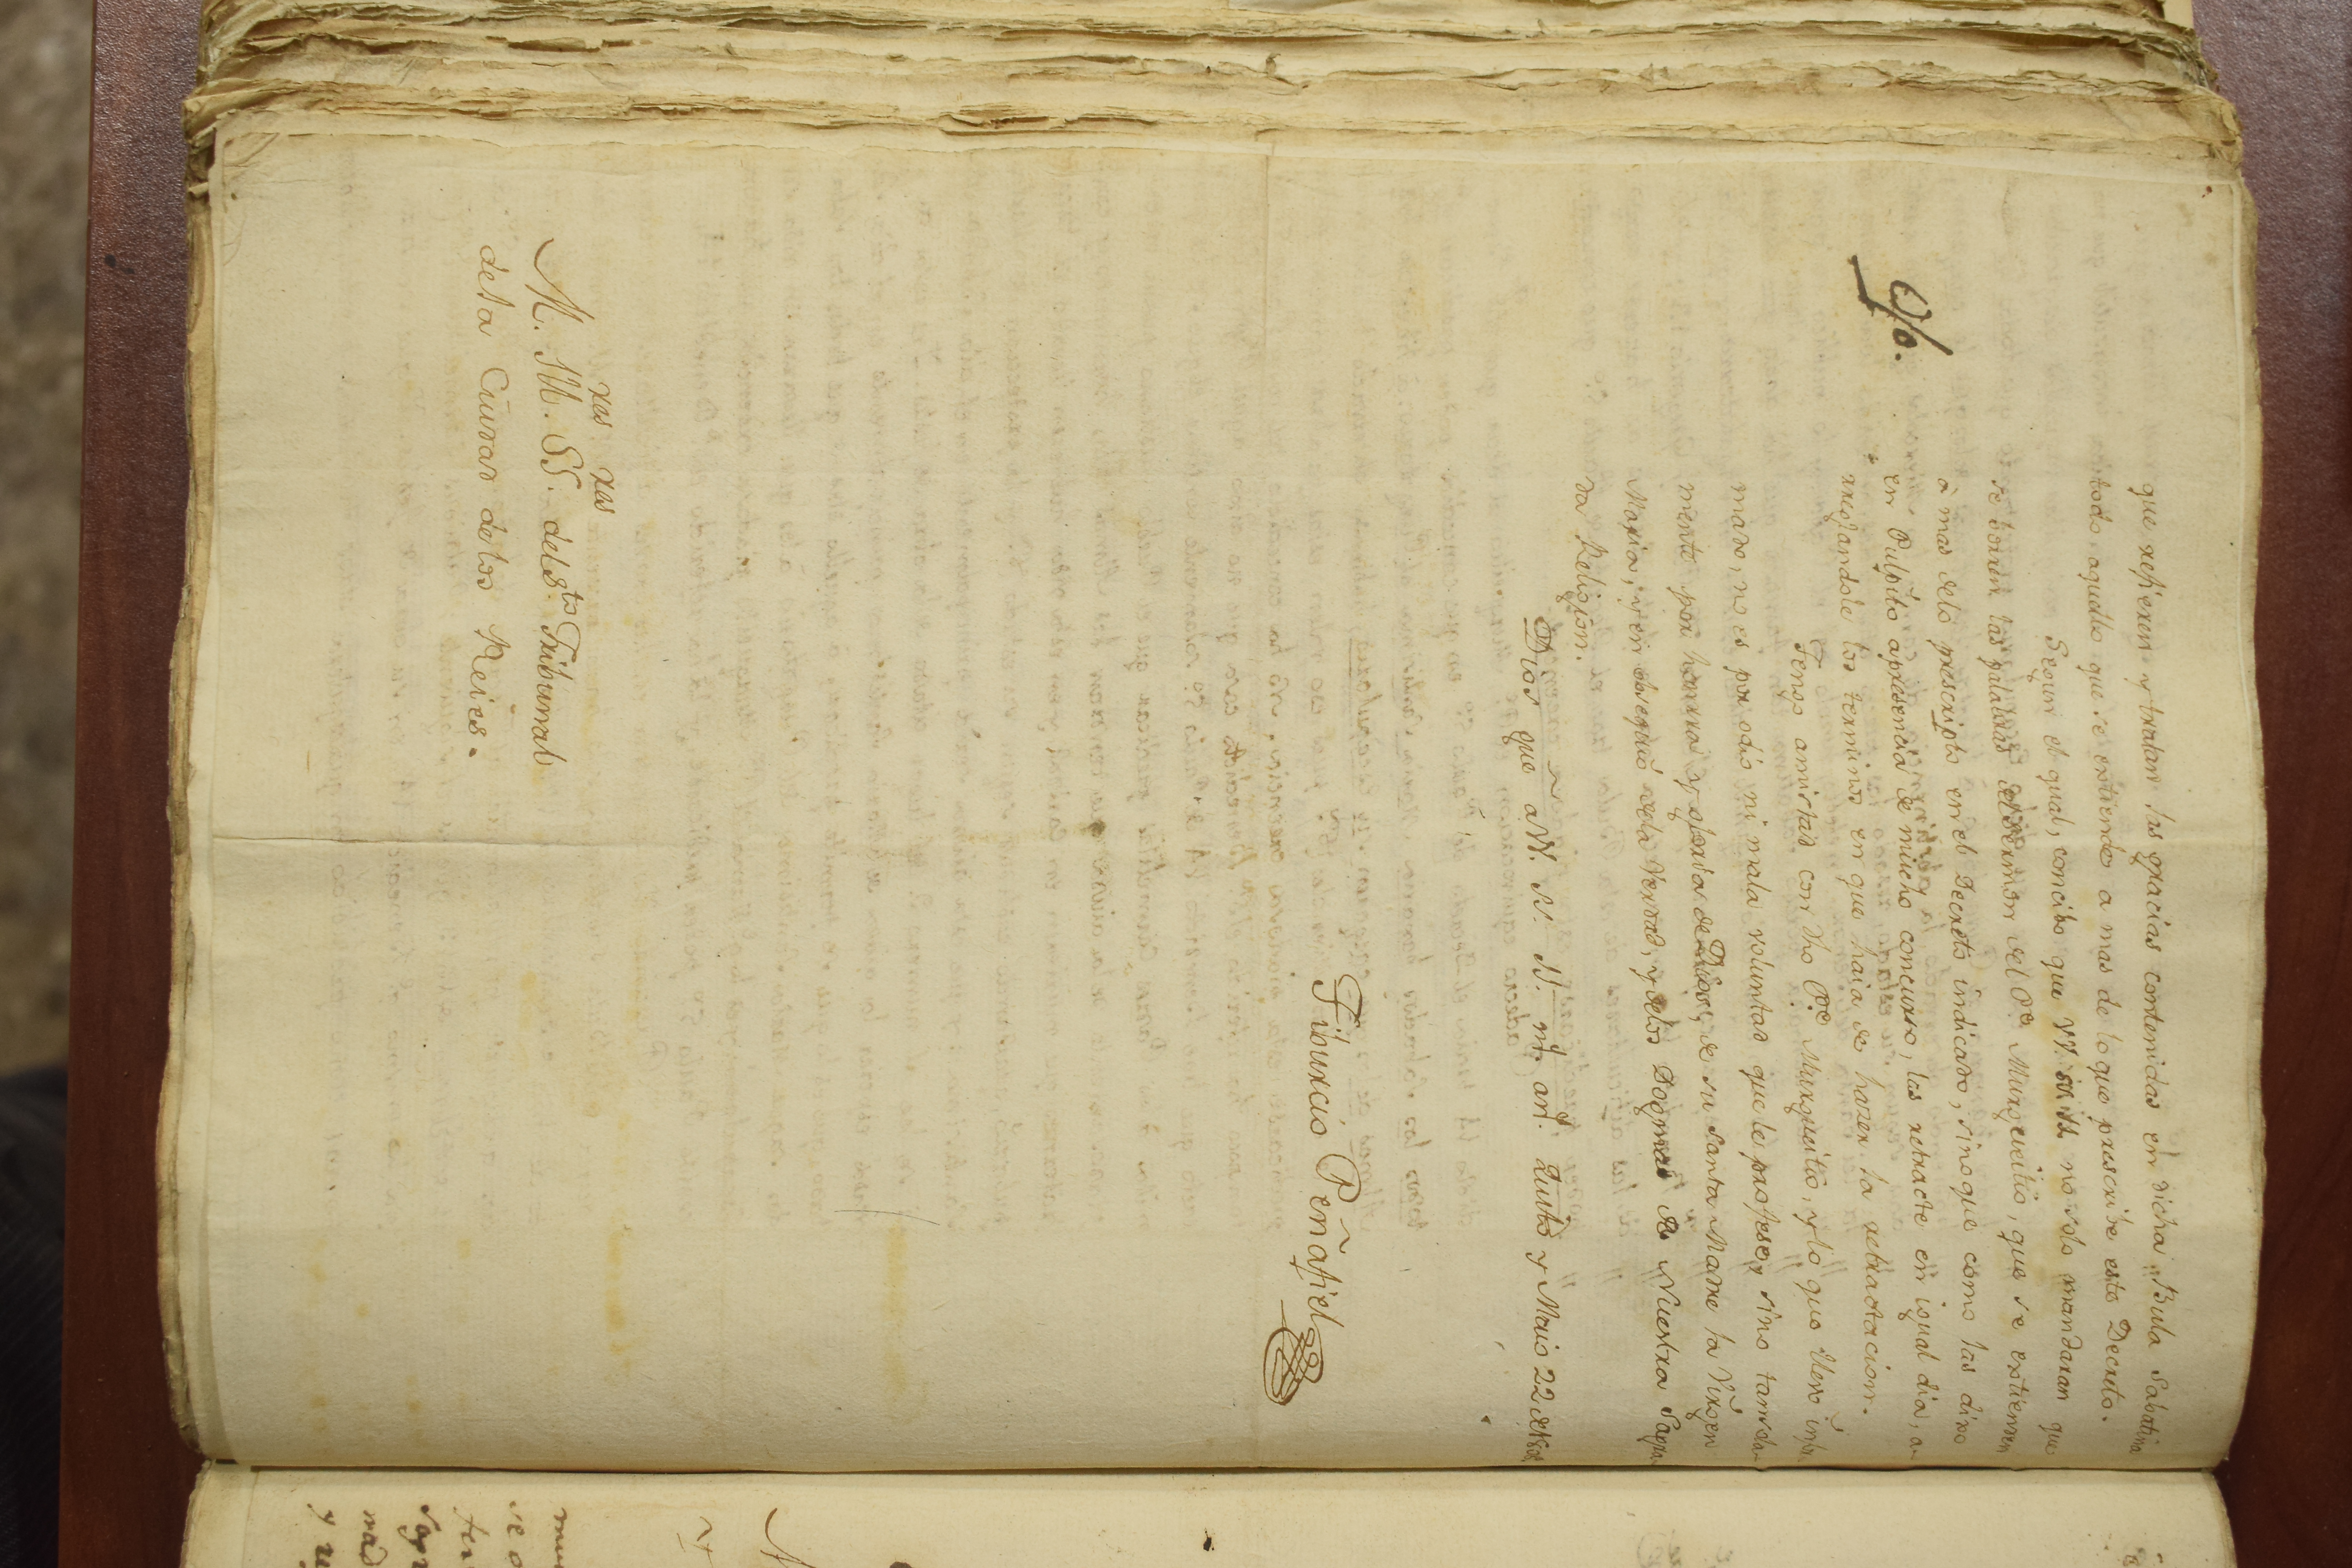 que refieren y tratan las gracias contenidas en dicha Bula Sabatina
todo aquello que se entiende a mas de lo que prescribe este Decreto.
Segun el qual, concibo que VV. no solo mandaran que
se borren las palabras del Sermon del Pe. Murgueitio, que se estienden
à mas delo prescripto en el Decreto indicado, sino que como las dixo
en Pulpito apresencia de mucho concurso, las retracte en igual dia, a
rreglandole los terminos en que haia de hazer la retractacion.
Tengo amistad con dho Pe. Murgueitio, y lo que llevo infor
mado, no es por odio ni mala voluntad que le profese, sino tansola
mente por honrra y gloria de Dios, de su Santa Madre la Virgen
Maria, y en obsequio dela Verdad, y delos Dogmas de Nuestra Sagra
da Religion.
Dios gue a VV. SS. ms. as. Quito y Maio 22 de
Tiburcio Peñafiel
M. Y. SS. del Sto Tribunal
dela Curas delos Reies.